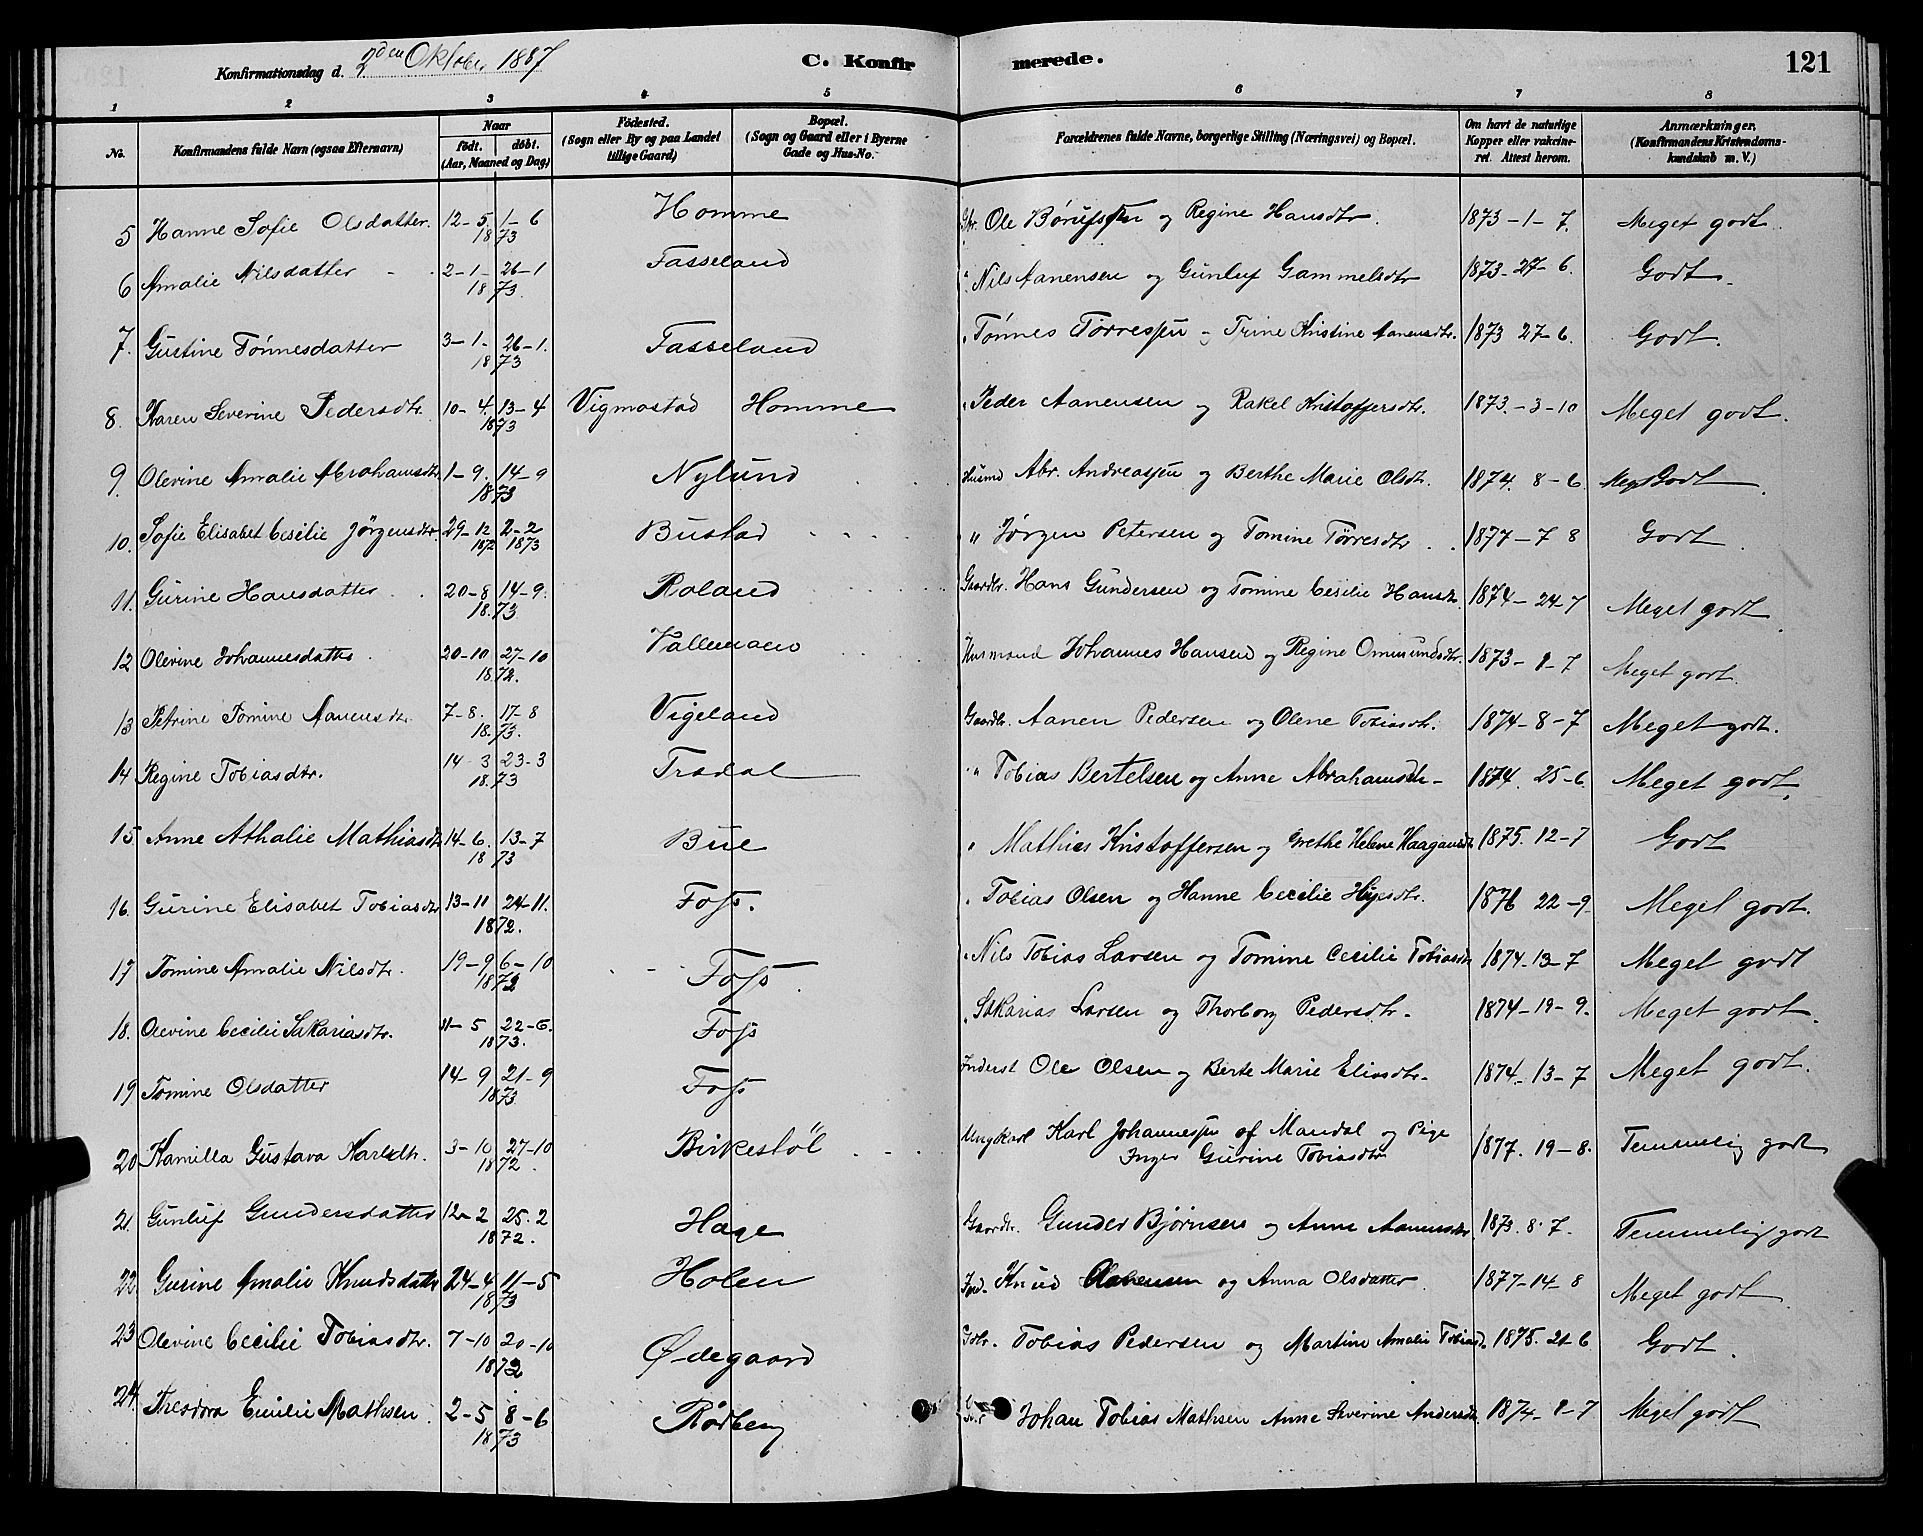 Konfirmationsdag d. 2den Oktober 1887 C. Konfir merede. 121
1 2 3 4 5 6 7 8
No. Konfirmandens fulde Navn (ogsaa Efternavn) Naar födt. döbt. (Aar, Maaned og Dag) Födested. (Sogn eller By og paa Landet tillige Gaard) Bopæl. (Sogn og Gaard eller i Byerne Gade og Hus-No.) Forældrenes fulde Navne, borgerlige Stilling (Næringsvei) og Bopæl. Om havt de naturlige Kopper eller vakcineret. Attest herom. Anmærkninger. (Konfirmandens Kristendomskundskab m. V.)
5 Hanne Sofie Olsdatter. 12-5 1-6 1873 Homme Gbr. Ole og Regine Hansdtr. 1873-1-7. Meget godt.
6 Amalie Nilsdatter 2-1- 26-1 1873. Fasseland " Nils Aanensen og Gunluf Gammelsdtr 1873-27-6. Godt.
7. Gustine Tönnesdatter 3-1- 26-1. 1873 Fasseland " Tönnes Torressen - Trine Kristine Aanensdtr. 1873 27-6. Godt.
8. Karen Severine Pedersdtr. 10-4. 13-4 1873 Vigmostad Homme " Peder Aanensen og Rakel Kristoffersdtr. 1873.-3-10 Meget godt.
9. Olevine Amalie Abrahamsdtr. 1-9. 14-9 1873 Nylund Husmd Abr. Andreassen og Berthe Marie Olsdtr. 1874. 8-6. Meg Godt
10. Sofie Elisabet Cesilie Jörgensdtr. 29-12 1872 2-2 1873 Bustad " Jörgen Petersen og Tomine Törresdtr. 1877-7 8 Godt
11. Gurine Hansdatter 20-8 14-9. 18.73 Roland Gaardbr. Hans Gundersen og Tomine Cesilie Hansdtr. 1874-24-7 Meget godt
12 Olevine Johannesdatter 20-10 27-10 1872. Vallemoen Husmand Johannes Hansen og Regine Ommundsdtr. 1873-8-7 Meget godt.
13 Petrine Tomine Aanensdtr. 7-8. 17-8 1873. Vigeland Gaardbr. Aanen Pedersen og Olene Tobiasdtr. 1874-8-7 Meget godt.
14 Regine Tobiasdtr. 14-3 23-3 18.73 Tradal " Tobias Bertelsen og Anne Abrahamsdtr- 1874. 25-6. Meget godt.
15 Anne Athalie Mathiasdtr 14-6. 13-7 1873 Bue " Mathias Kristoffersen og Grethe Helene Haagansdtr 1875. 12-7 Godt
16. Gurine Elisabet Tobiasdtr 13-11 24-11. 1872. Foss. " Tobias Olsen og Hanne Cecilie 1876 22-9. Meget godt.
17 Tomine Amalie Nilsdtr. 19-9 6-10 1872 Foss " Nils Tobias Larsen og Tomine Cecilie Tobiasdtr 1874-13-7 Meget godt
18. Olevine Cecilie Sakariasdtr. 11-5 22-6. 1873. Foss " Sakarias Larsen og Thorborg Pedersdtr. 1874-19-9. Meget godt.
19 Tomine Olsdatter 14-9 21-9 1873 Foss Inderst Ole Olsen og Berte Marie Eliasdtr- 1874-13-7 Meget godt.
20 Kamilla Gustava Karlsdtr. 3-10 27-10 1872. Birkestöl Ungkarl Karl Johannessen af Mandal og Pige
Inger Gurine Tobiasdtr 1877. 19-8. Temmelig godt
21. Gunluf Gundersdatter 12-2 25.2 1872. Hage Gaardbr. Gunder Björnsen og Anne Aanensdtr 1873.8.7. Temmelig godt
22. Gurine Amalie Knudsdatter 24-4 11-5 1873 Holen Ind. Knud Aanensen og Anna Olsdatter. 1877-14-8 Meget godt
23 Olevine Cecilie Tobiasdtr. 7-10 20-10 1872 Ødegaard Gbr. Tobias Pedersen og Martine Amalie Tobiasd. 1875. 21-6 Godt.
24. Theodora Emilie Mathsen. 2-5 8-6 1873 Rödberg Johan Tobias Mathsen Anne Severine Andersdtr 1874-8-7 Meget godt